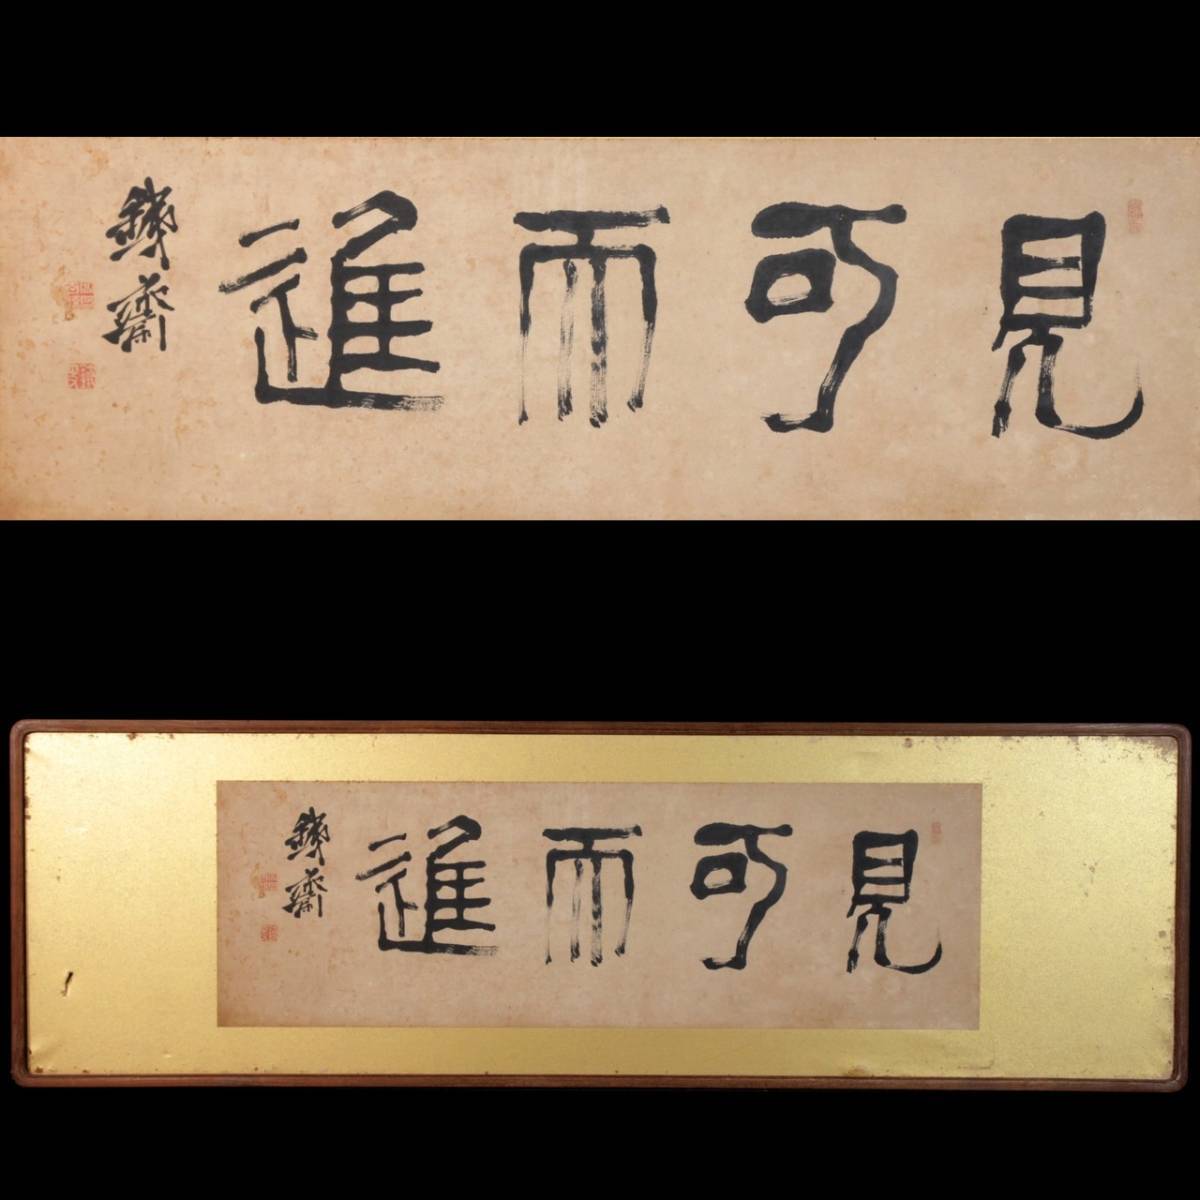 見可而進
鐵齋
見可而進
鐵齋